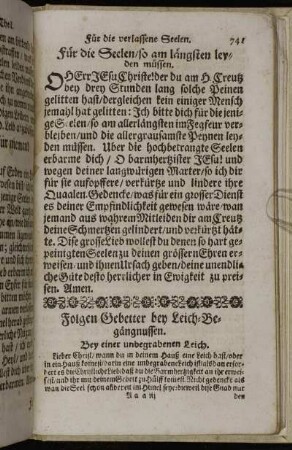 Für die verlassene Seelen. 741
Für die Seelen / so am längsten ley-
den müssen.
O HErr JEsu Christe! der du am H. Creutz
bey drey Stunden lang solche Peinen
gelitten hast / dergleichen kein einiger Mensch
jemahl hat gelitten: Ich bitte dich für die jeni-
ge Seelen / so am allerlängsten im Fegfeur ver-
bleiben / und die allergrausamste Peynen ley-
den müssen. Uber die hochbetrangte Seelen
erbarme dich / O barmhertzister JEsu! und
wegen deiner langwürigen Marter / so ich dir
für sie auffopffere / verkürtze und lindere ihre
Quaalen. Gedencke / was für ein grosser Dienst
es deiner Empfindlichkeit gewesen wäre / wan
jemand aus wahrem Mitleiden dir am Creutz
deine Schmertzen gelindert / und verkürtzt hät-
te. Dise grosse Lieb wollest du denen so hart ge-
peinigten Seelen zu deinen grössern Ehren er-
weisen / und ihnen Ursach geben / deine unendli-
che Güte desto herrlicher in Ewigkeit zu prei-
sen. Amen.
Folgen Gebetter bey Leich-Be-
gängnussen.
Bey einer unbegrabenen Leich.
Lieber Christ / wann du in deinem Hauß eine Leich hast / oder
in ein Hauß kommest / darin eine unbegrabene Leich ist / alsdan erfor-
dert es die Christliche Lieb / daß du die Barmhertzigkeit an ihr erwei-
sest / und ihr mit deinem Gebett zu Hülff kommest. Nicht gedenck als
wan die Seel schon alsbereit im Himel seye: dieweil dise Gnad nur
Aaa iij den